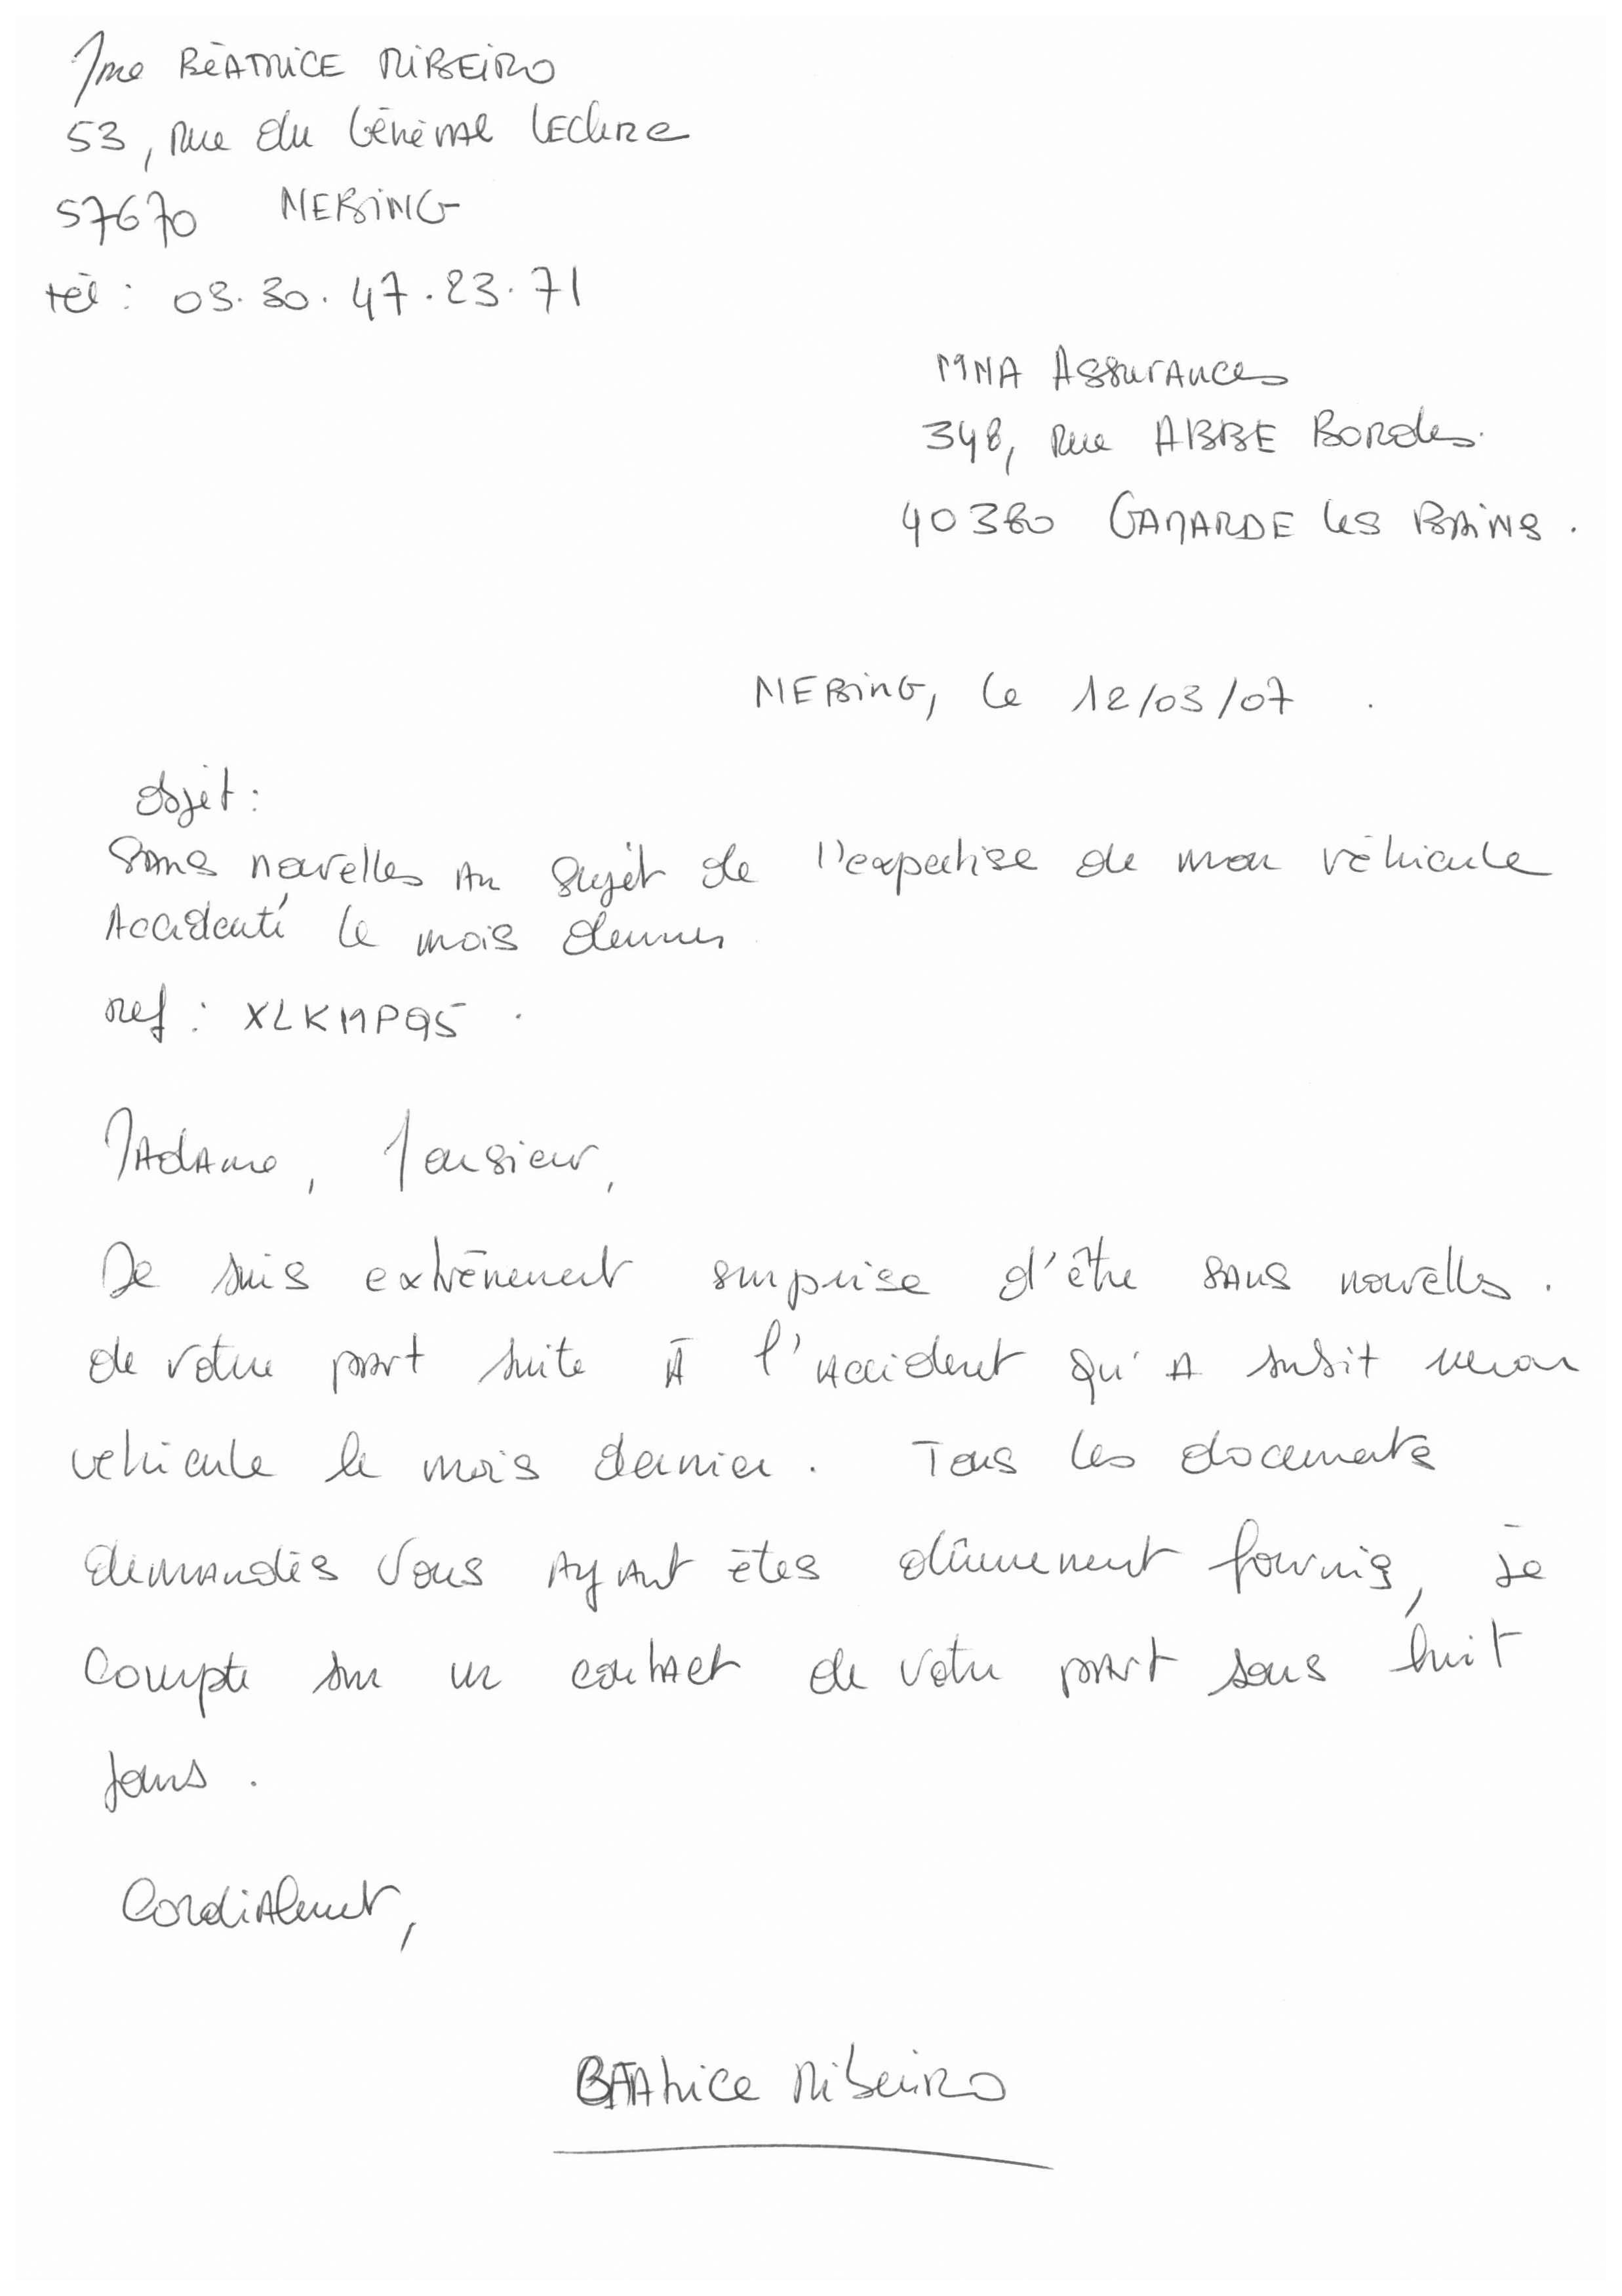 Mme BÉATRICE RIBEIRO
53, Rue du Général Leclerc
57670 NEBING
tél : 03.30.47.23.71
MMA Assurances
348, Rue ABBE Bordes.
40380 GAMARDE les BAINS.
NEBING, le 12/03/07.
Objet :
Sans nouvelles au sujet de l'expertise de mon véhicule
Accidenté le mois dernier
ref : XLKMP95.
Madame, Monsieur,
Je suis extrêmement surprise d'être sans nouvelles.
de votre part suite à l'accident qu'a subit mon
vehicule le mois dernier. Tous les documents
demandés vous ayant étés dûmement fournis, je
compte sur un contact de votre part sous huit
jours.
Cordialement,
Béatrice Ribeiro